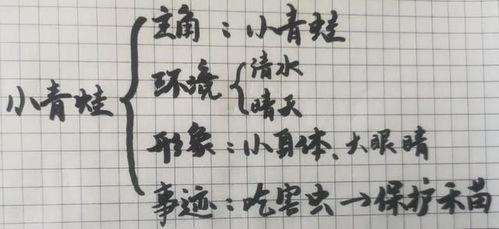 小青蛙
主角：小青蛙
环境
清水
晴天
形象：小身体、大眼晴
事迹：吃害虫→保护禾苗